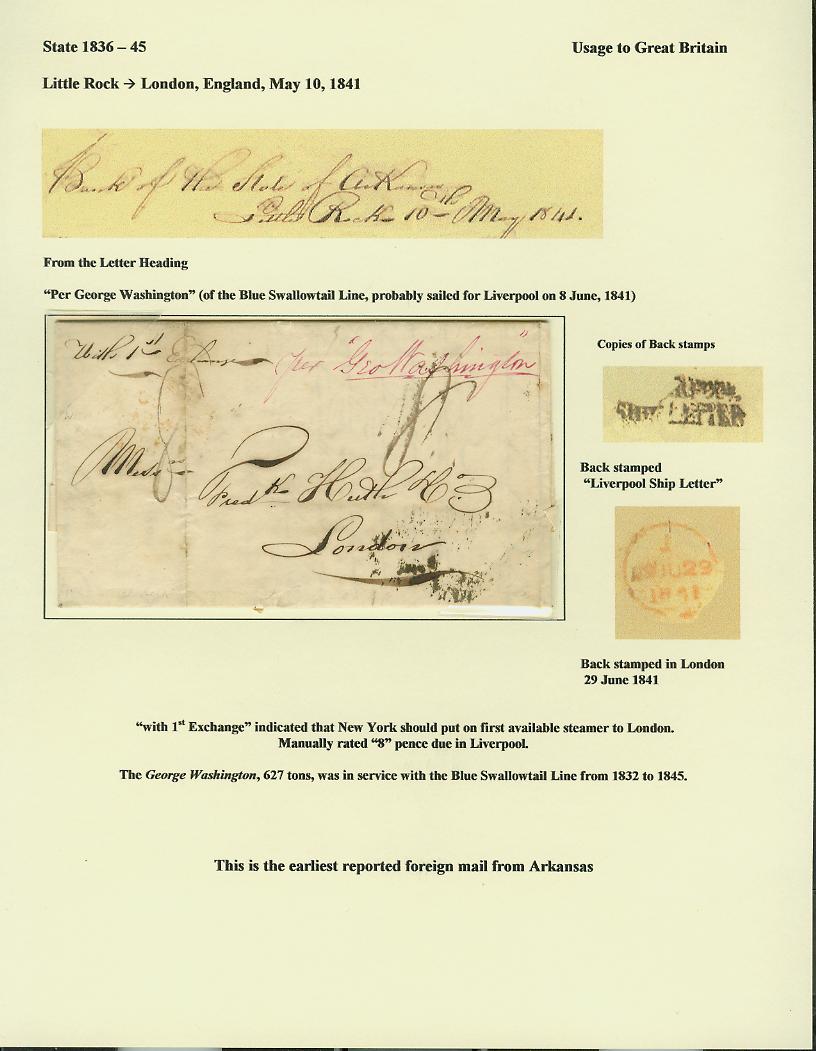 State 1836 – 45
Usage to Great Britain
Little Rock → London, England, May 10, 1841
Bank of the State of Arkansas
Little Rock 10th May 1841.
From the Letter Heading
“Per George Washington” (of the Blue Swallowtail Line, probably sailed for Liverpool on 8 June, 1841)
With 1st Exchange
per "Geo Washington"
Messrs
Fredk Huth & Co
London
Copies of Back stamps
SHIP LETTER
Back stamped
“Liverpool Ship Letter”
JU 29
1841
Back stamped in London
29 June 1841
“with 1st Exchange” indicated that New York should put on first available steamer to London.
Manually rated “8” pence due in Liverpool.
The George Washington, 627 tons, was in service with the Blue Swallowtail Line from 1832 to 1845.
This is the earliest reported foreign mail from Arkansas